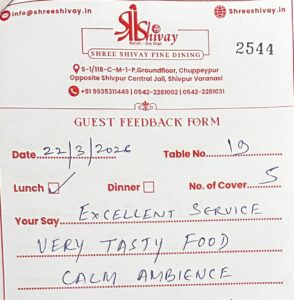 info@shreeshivay.in Shreeshivay.in
Shivay
2544
SHREE SHIVAY FINE DINING
S-1/118-C-M-1-P,Groundfloor, Chuppeypur
Opposite Shivpur Central Jail, Shivpur Varanasi
+91 9935311449 | 0542-2281002 | 0542-2281031
GUEST FEEDBACK FORM
Date 22/3/2026 Table No. 19
Lunch ✓ Dinner No. of Cover 5
Your Say EXCELLENT SERVICE
VERY TASTY FOOD
CALM AMBIENCE